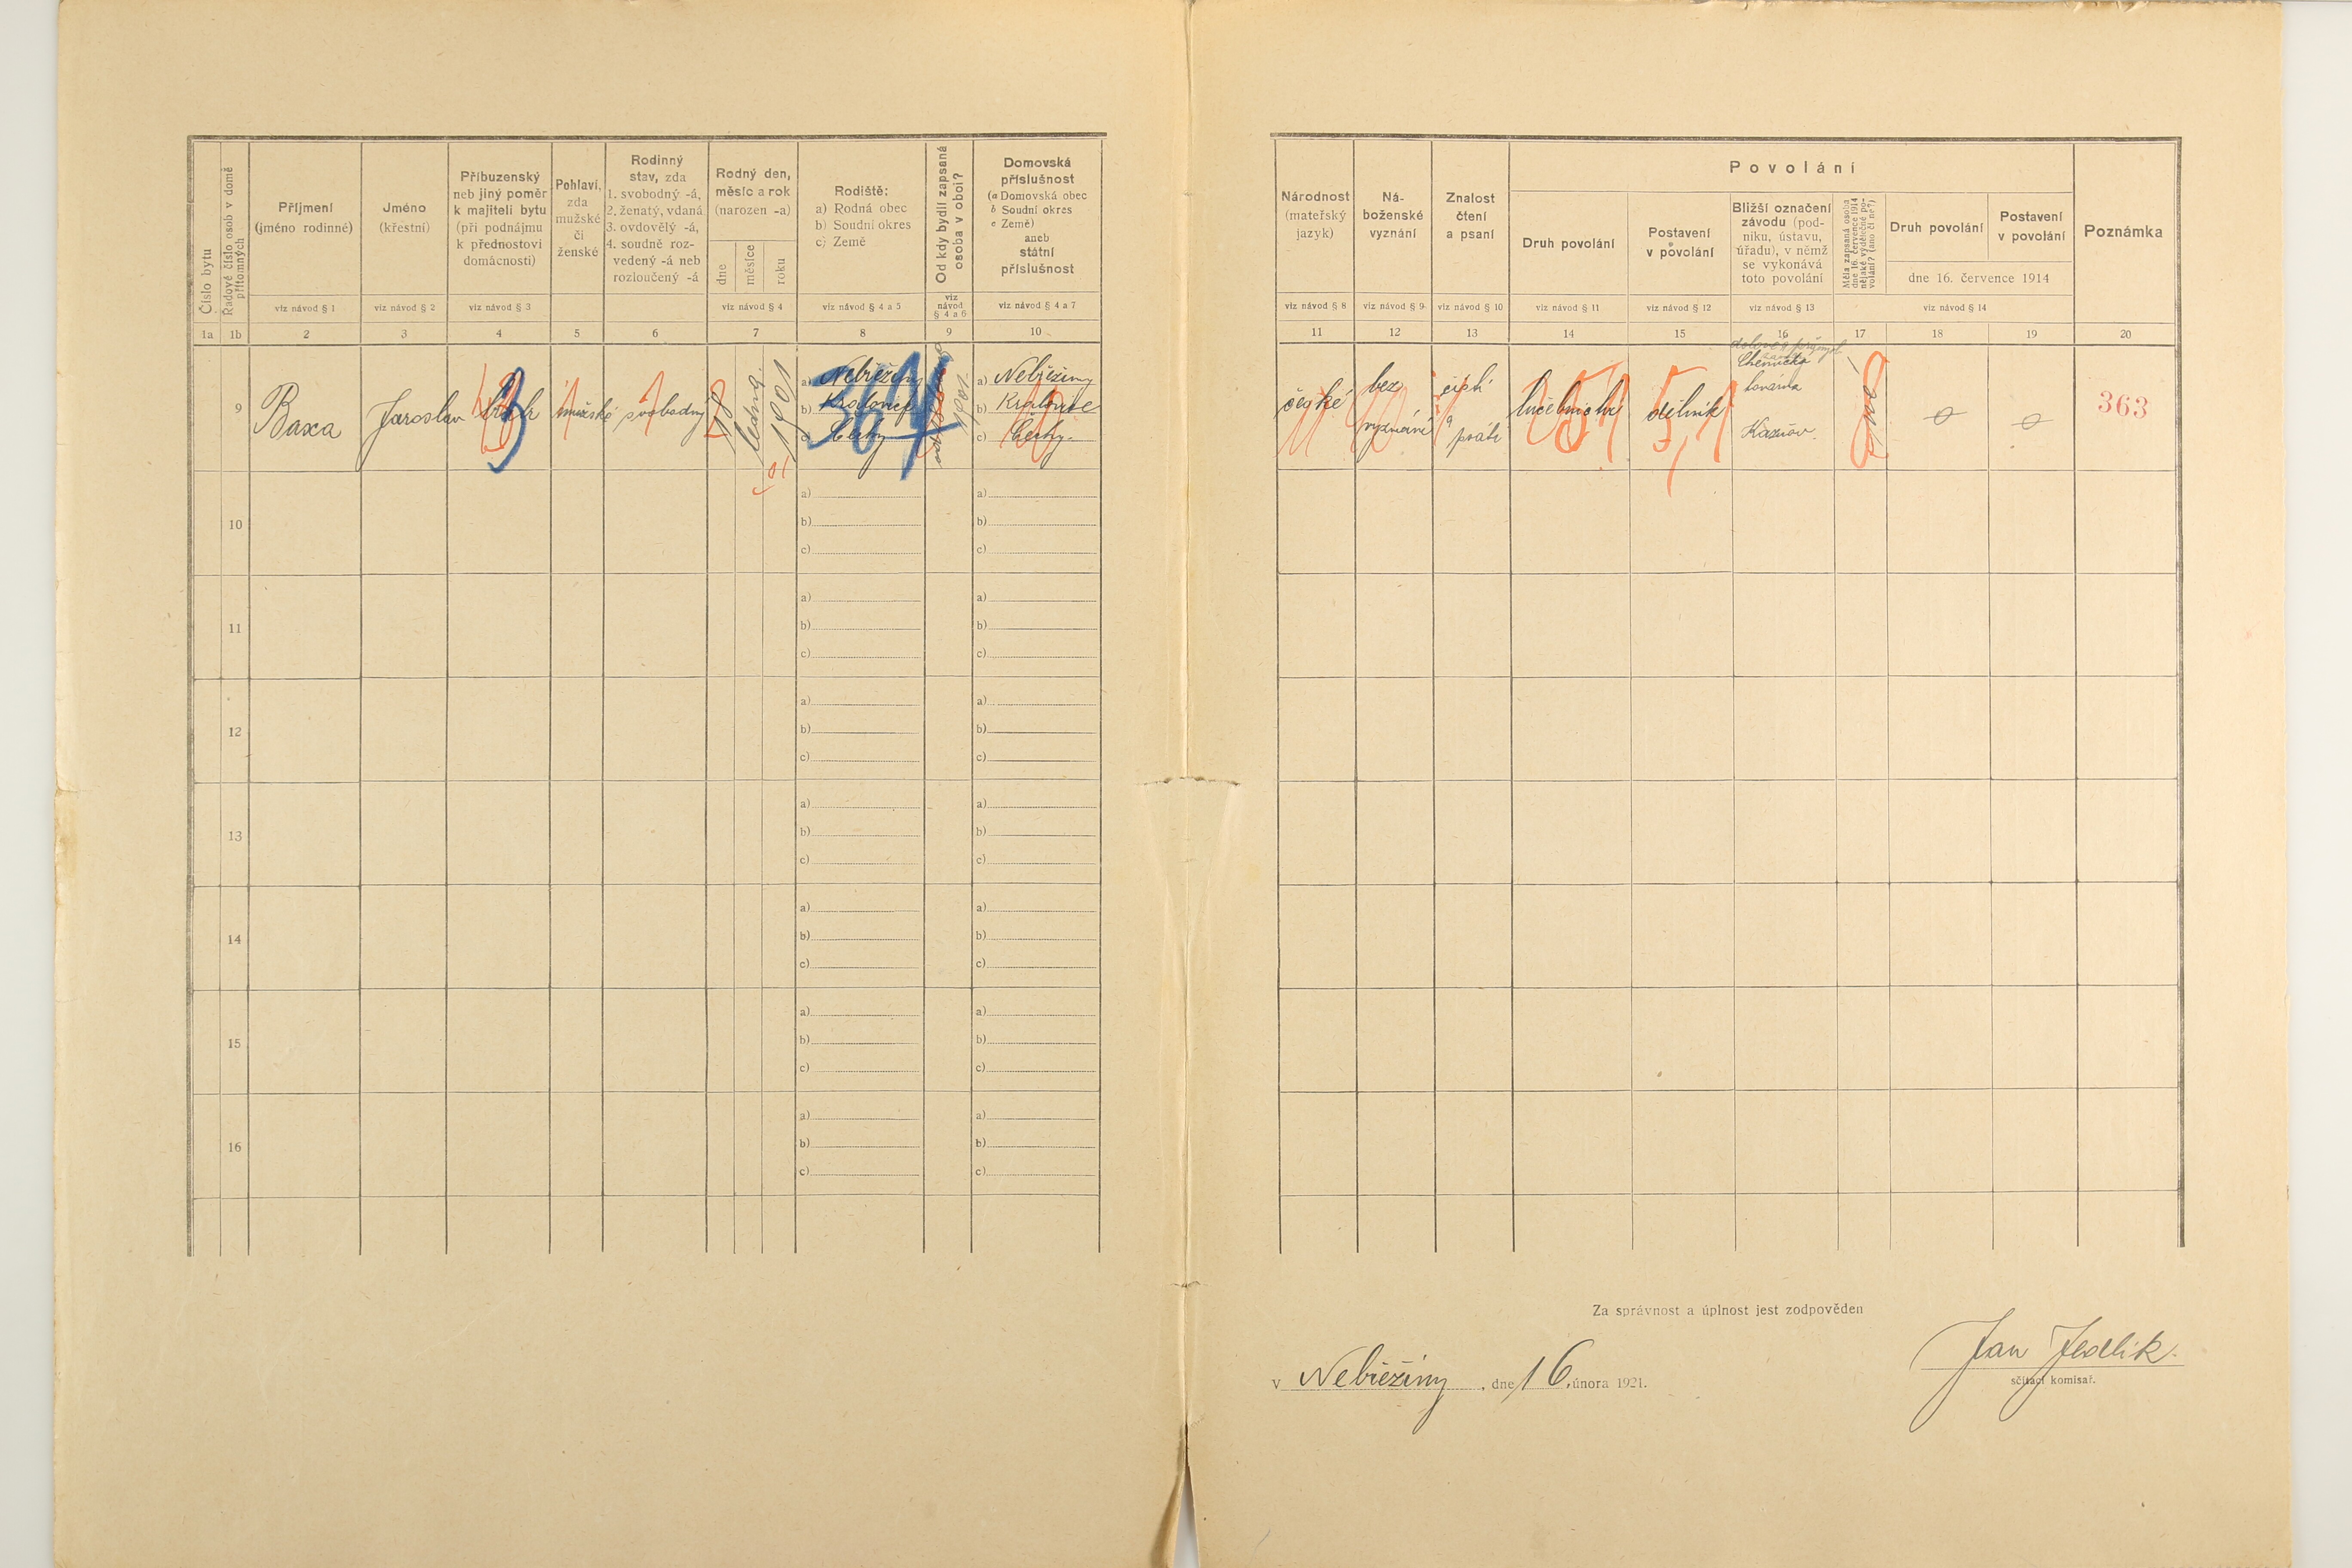 Číslo bytu
Řadové číslo osob v domě přítomných
Příjmení
(jméno rodinné)
Jméno
(křestní)
Příbuzenský
neb jiný poměr
k majiteli bytu
(při podnájmu
k přednostovi
domácnosti)
Pohlaví,
zda
mužské
či
ženské
Rodinný
stav, zda
1. svobodný -á,
2. ženatý, vdaná
3. ovdovělý -á,
4. soudně roz-
vedený -á neb
rozloučený -á
Rodný den,
měsíc a rok
(narozen -a)
dne
měsíce
roku
Rodiště:
a) Rodná obec
b) Soudní okres
c) Země
Od kdy bydlí zapsaná
osoba v obci?
Domovská
příslušnost
(a Domovská obec
b Soudní okres
c Země)
aneb
státní
příslušnost
viz návod § 1
viz návod § 2
viz návod § 3
viz návod § 4
viz návod § 4 a 5
viz
návod
§ 4 a 6
viz návod § 4 a 7
1a 1b 2 3 4 5 6 7 8 9 10
Národnost
(mateřský
jazyk)
Ná-
boženské
vyznání
Znalost
čtení
a psaní
Povolání
Druh povolání
Postavení
v povolání
Bližší označení
závodu (pod-
niku, ústavu,
úřadu), v němž
se vykonává
toto povolání
Měla zapsaná osoba
dne 16. července 1914
nějaké výdělečné po-
volání? (ano či ne?)
Druh povolání
Postavení
v povolání
dne 16. července 1914
Poznámka
viz návod § 8
viz návod § 9
viz návod § 10
viz návod § 11
viz návod § 12
viz návod § 13
viz návod § 14
11 12 13 14 15 16 17 18 19 20
9
Baxa
Jaroslav
mužské
svobodný
18
ledna
1901
01
a) Nebřeziny
b) Kralovice
c) Čechy
364
1901
a) Nebřeziny
b) Kralovice
c) Čechy
české
bez
vyznání
čísti
a psáti
lučebnictví
dělník
Chemická
továrna
Kaznov
363
10
a)
b)
c)
a)
b)
c)
11
a)
b)
c)
a)
b)
c)
12
a)
b)
c)
a)
b)
c)
13
a)
b)
c)
a)
b)
c)
14
a)
b)
c)
a)
b)
c)
15
a)
b)
c)
a)
b)
c)
16
a)
b)
c)
a)
b)
c)
Za správnost a úplnost jest zodpověden
v Nebřeziny, dne 16. února 1921.
Jan Jedlik.
sčítací komisař.